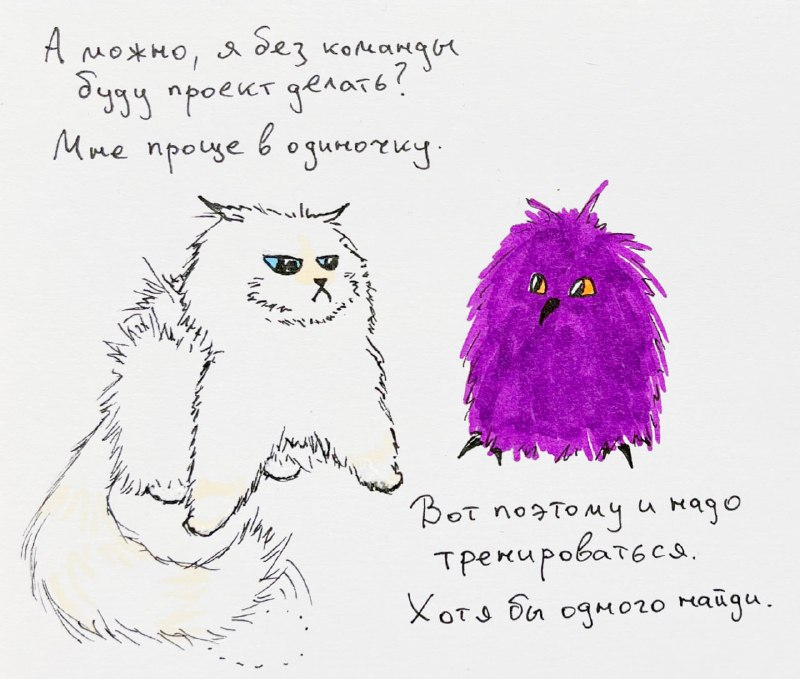 А можно, я без команды
буду проект делать?
Мне проще в одиночку.
Вот поэтому и надо
тренироваться.
Хотя бы одного найди.